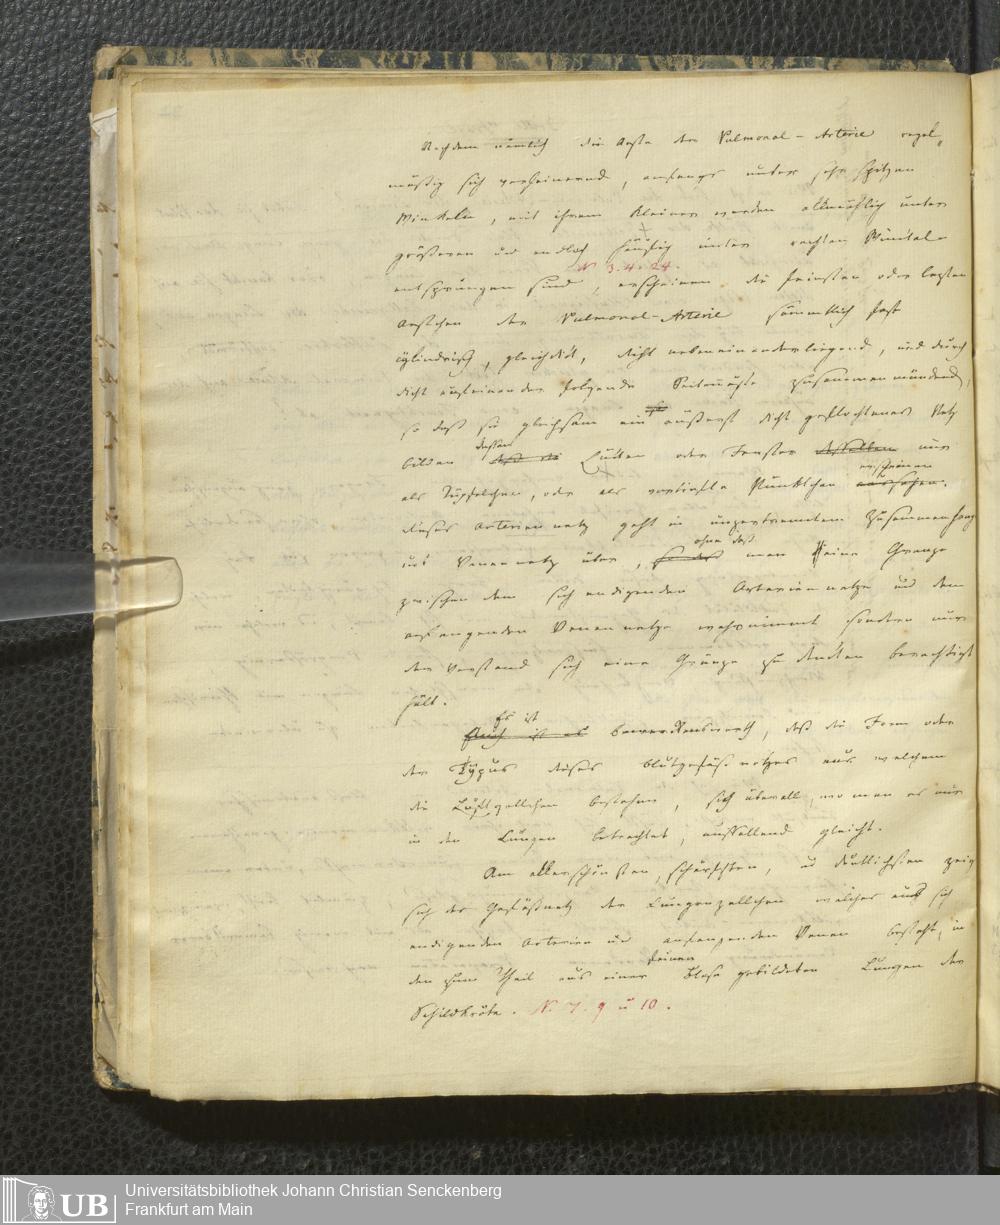 Nachdem nämlich die Aeste der Pulmonal-Arterie regel„
mäßig sich verkleinernd, anfangs unter sehr spitzen
Winkeln, mit ihrem Kleiner werden allmählich unter
größeren und endlich häufig unter rechten Winkeln
N 3. 4. 24.
entsprungen sind, erscheinen die feinsten oder letzten
Aestchen der Pulmonal-Arterie sämmtlich fast
cylindrisch, gleichdick, dicht nebeneinanderliegend, und durch
dicht aufeinander folgende Seitenäste zusammenmündend,
so daß sie gleichsam ein äußerst dicht geflochtenes Netz
bilden dessen Lücken oder Fenster desselben nur
als Tüpfelchen, oder als vertiefte Pünktchen erscheinen
aussehen.
dieses Arteriennetz geht in ungetrenntem Zusammenhang
ins Venennetz über, ohne daß man eine Grenze
zwischen dem sich endigenden Arteriennetze und dem
anfangenden Venennetze wahrnimmt sondern nur
der Verstand sich eine Gränze zu denken berechtigt
hält.
Es ist
Auch ist es bemerkenswerth, daß die Form oder
der Typus dieses Blutgefäßnetzes aus welchem
die Luftzellchen bestehen, sich überall, wo man es nur
in den Lungen betrachtet, auffallend gleicht.
Am allerschönsten, schärfsten, u deutlichsten zeigt
sich das Gefäßnetz der Lungenzellchen welches aus sich
endigenden Arterien und anfangenden Venen besteht, in
den zum Theil aus einer feinen Blase gebildeten Lungen der
Schildkröte. N. 7. 9 u 10.
Universitätsbibliothek Johann Christian Senckenberg
Frankfurt am Main
UB